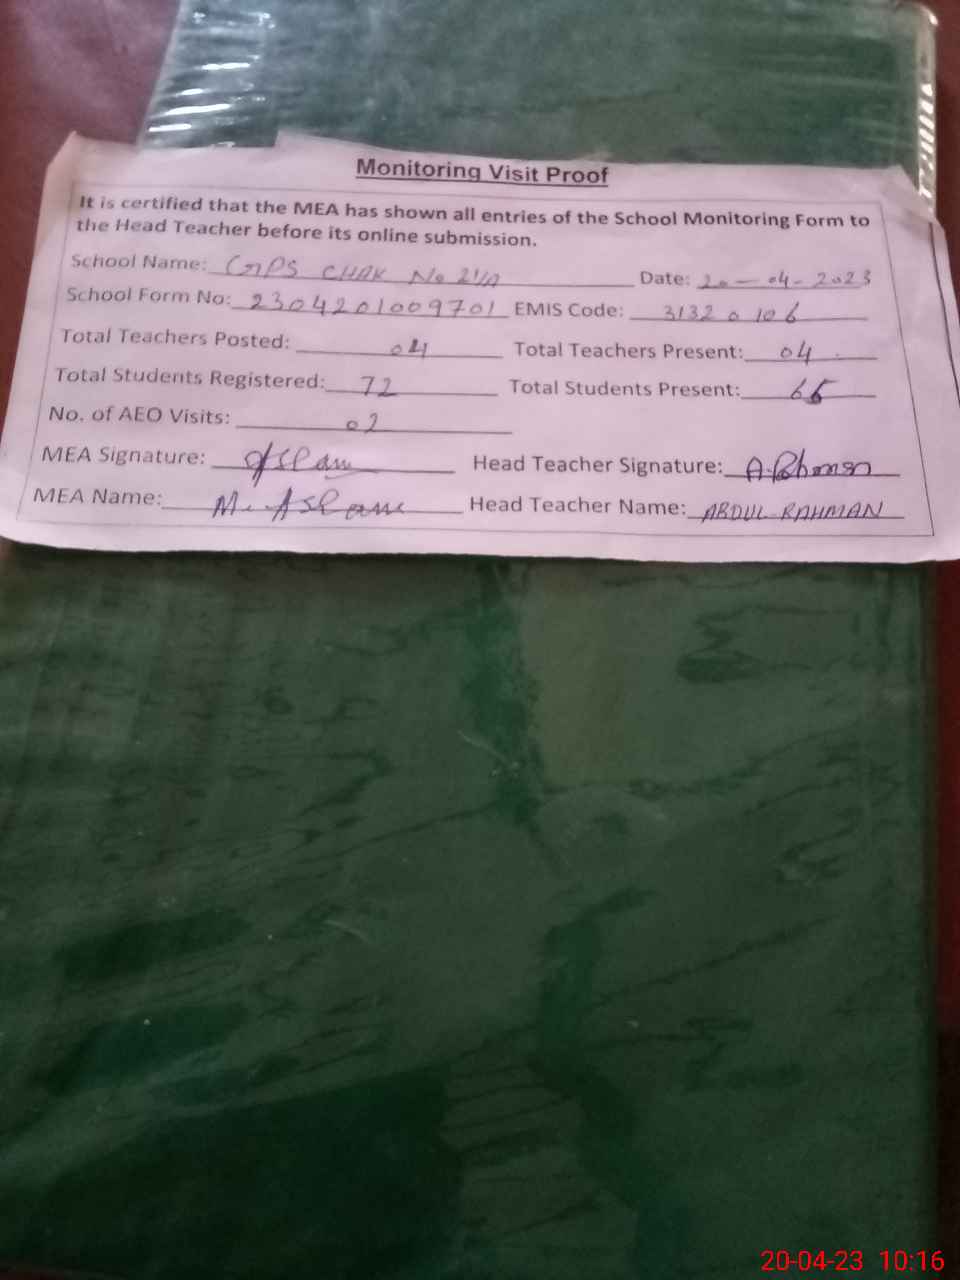 Monitoring Visit Proof
It is certified that the MEA has shown all entries of the School Monitoring Form to
the Head Teacher before its online submission.
School Name: GMPS CHAK No 21/A Date: 20-04-2023
School Form No: 2304201009701 EMIS Code: 31320106
Total Teachers Posted: 04 Total Teachers Present: 04
Total Students Registered: 72 Total Students Present:
No. of AEO Visits: 02
MEA Signature: Head Teacher Signature: A.Rahman
MEA Name: Head Teacher Name: ABDUL RAHMAN
20-04-23 10:16